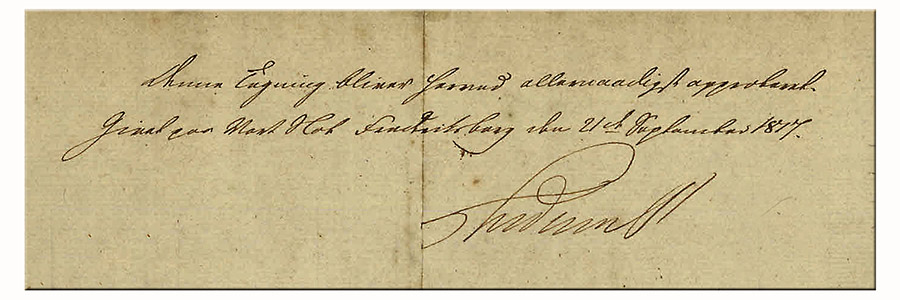 Denne Tegning bliver herved allernaadigst approberet.
Givet paa Vort Slot Fredriksberg den 21de September 1817.